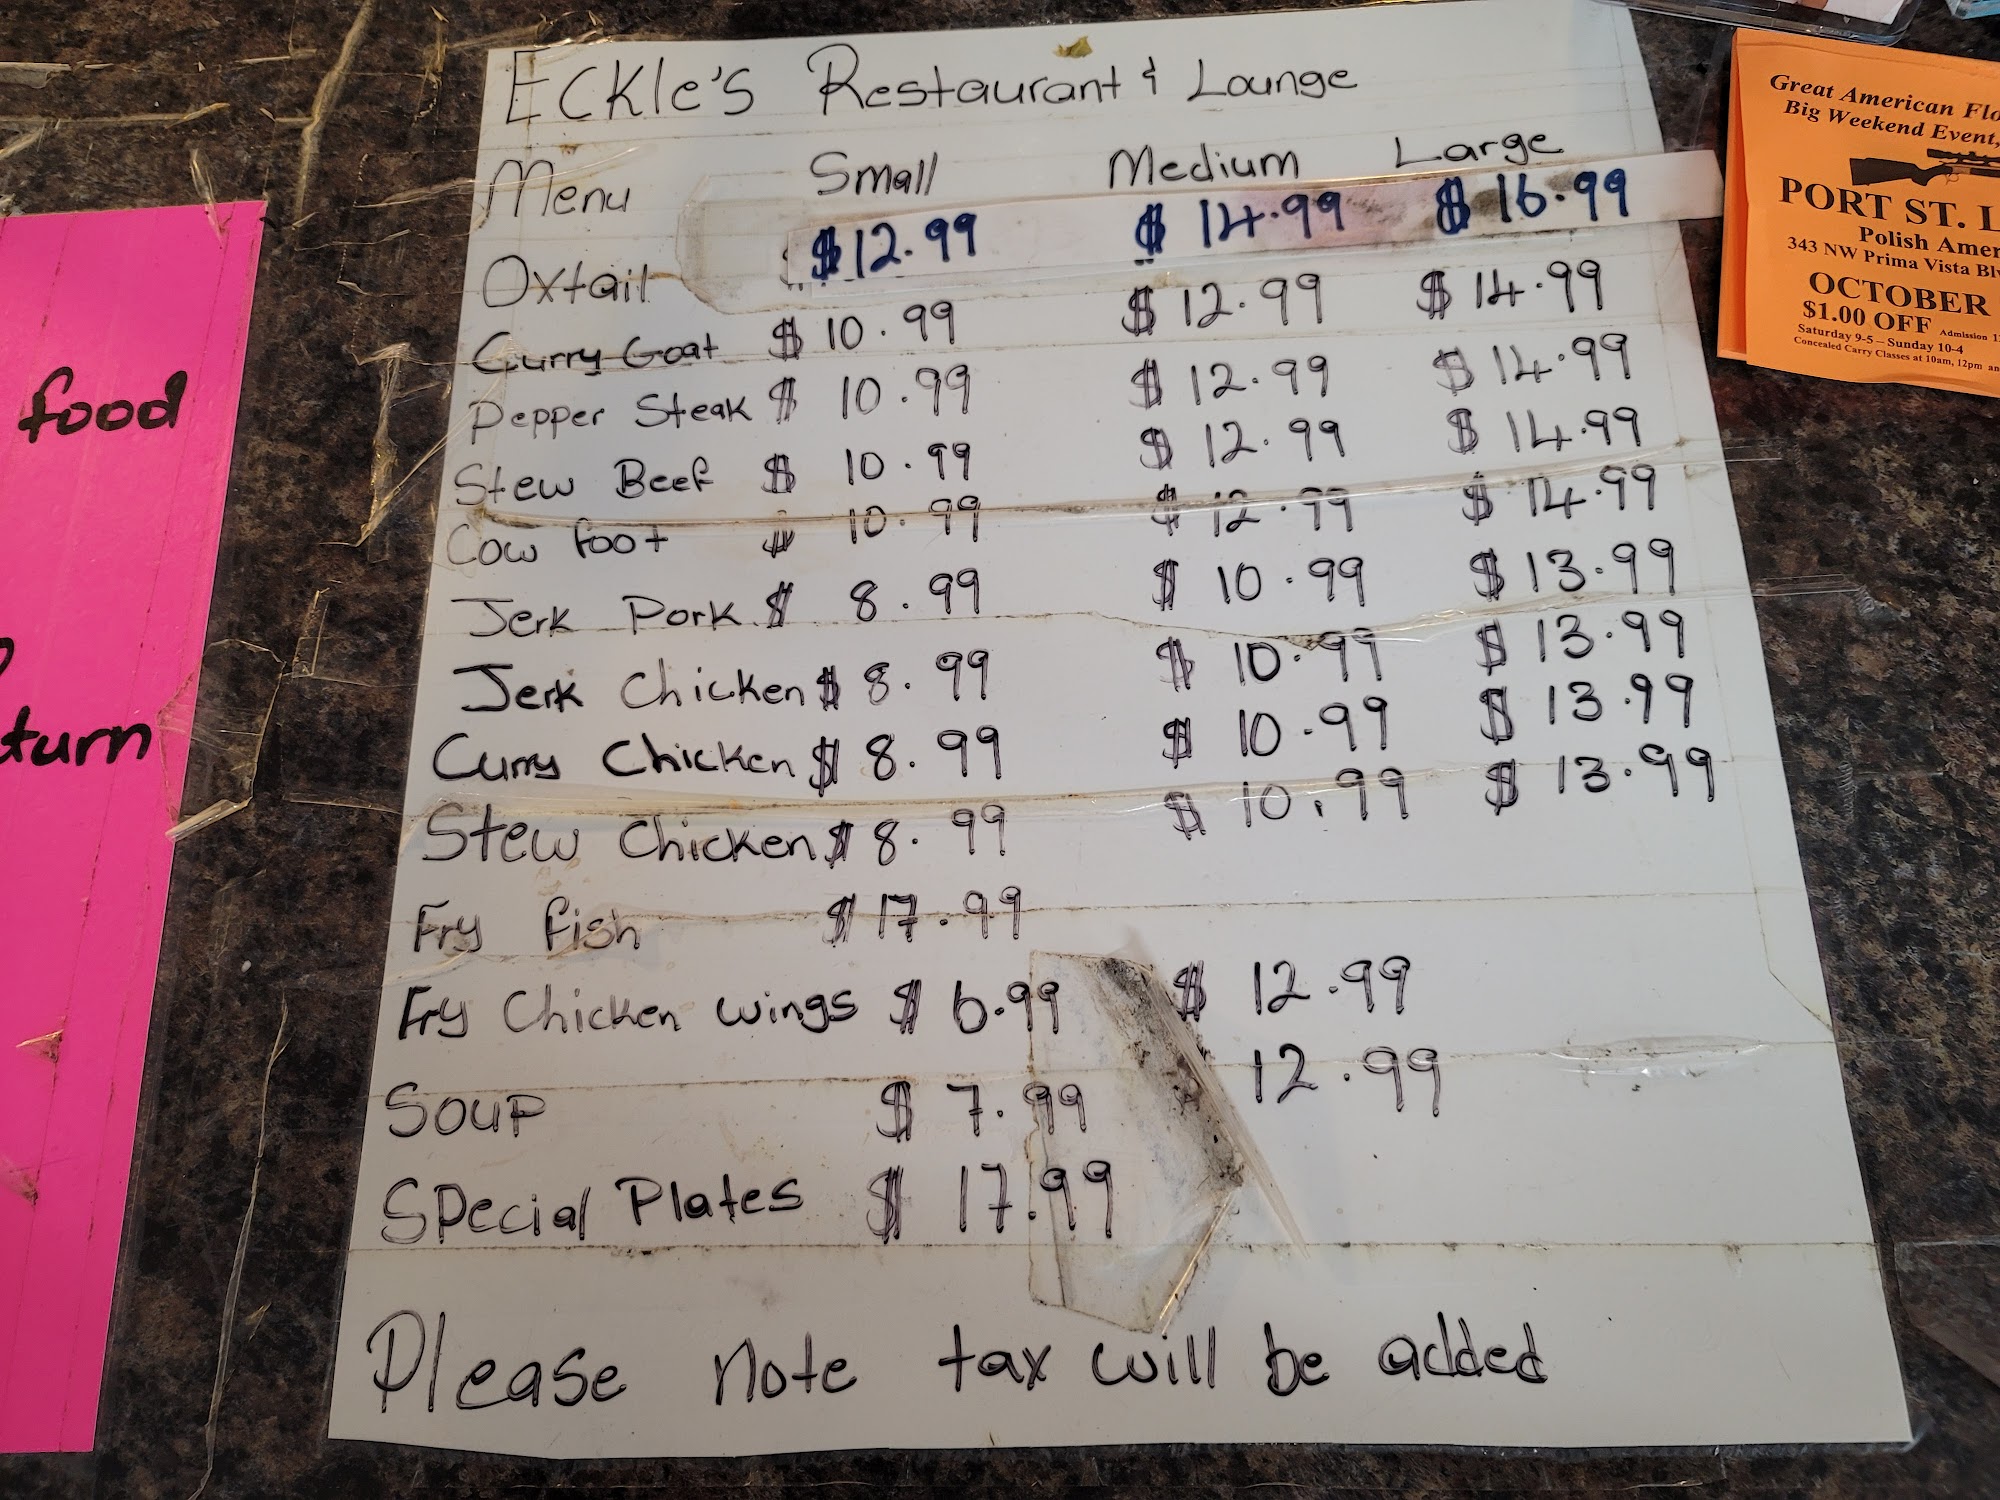 Eckle's Restaurant & Lounge
Menu Small Medium Large
Oxtail $12.99 $14.99 $16.99
Curry Goat $10.99 $12.99 $14.99
Pepper Steak $10.99 $12.99 $14.99
Stew Beef $10.99 $12.99 $14.99
Cow foot $10.99 $12.99 $14.99
Jerk Pork $8.99 $10.99 $13.99
Jerk Chicken $8.99 $10.99 $13.99
Curry Chicken $8.99 $10.99 $13.99
Stew Chicken $8.99 $10.99 $13.99
Fry fish $17.99
Fry Chicken wings $6.99 $12.99
Soup $7.99 12.99
Special Plates $17.99
Please note tax will be added
food
Great American
Big Weekend Event,
PORT ST.
Polish
343 NW Prima Vista
OCTOBER
$1.00 OFF Admission
Saturday 9-5 – Sunday 10-4
Concealed Carry Classes at 10am, 12pm